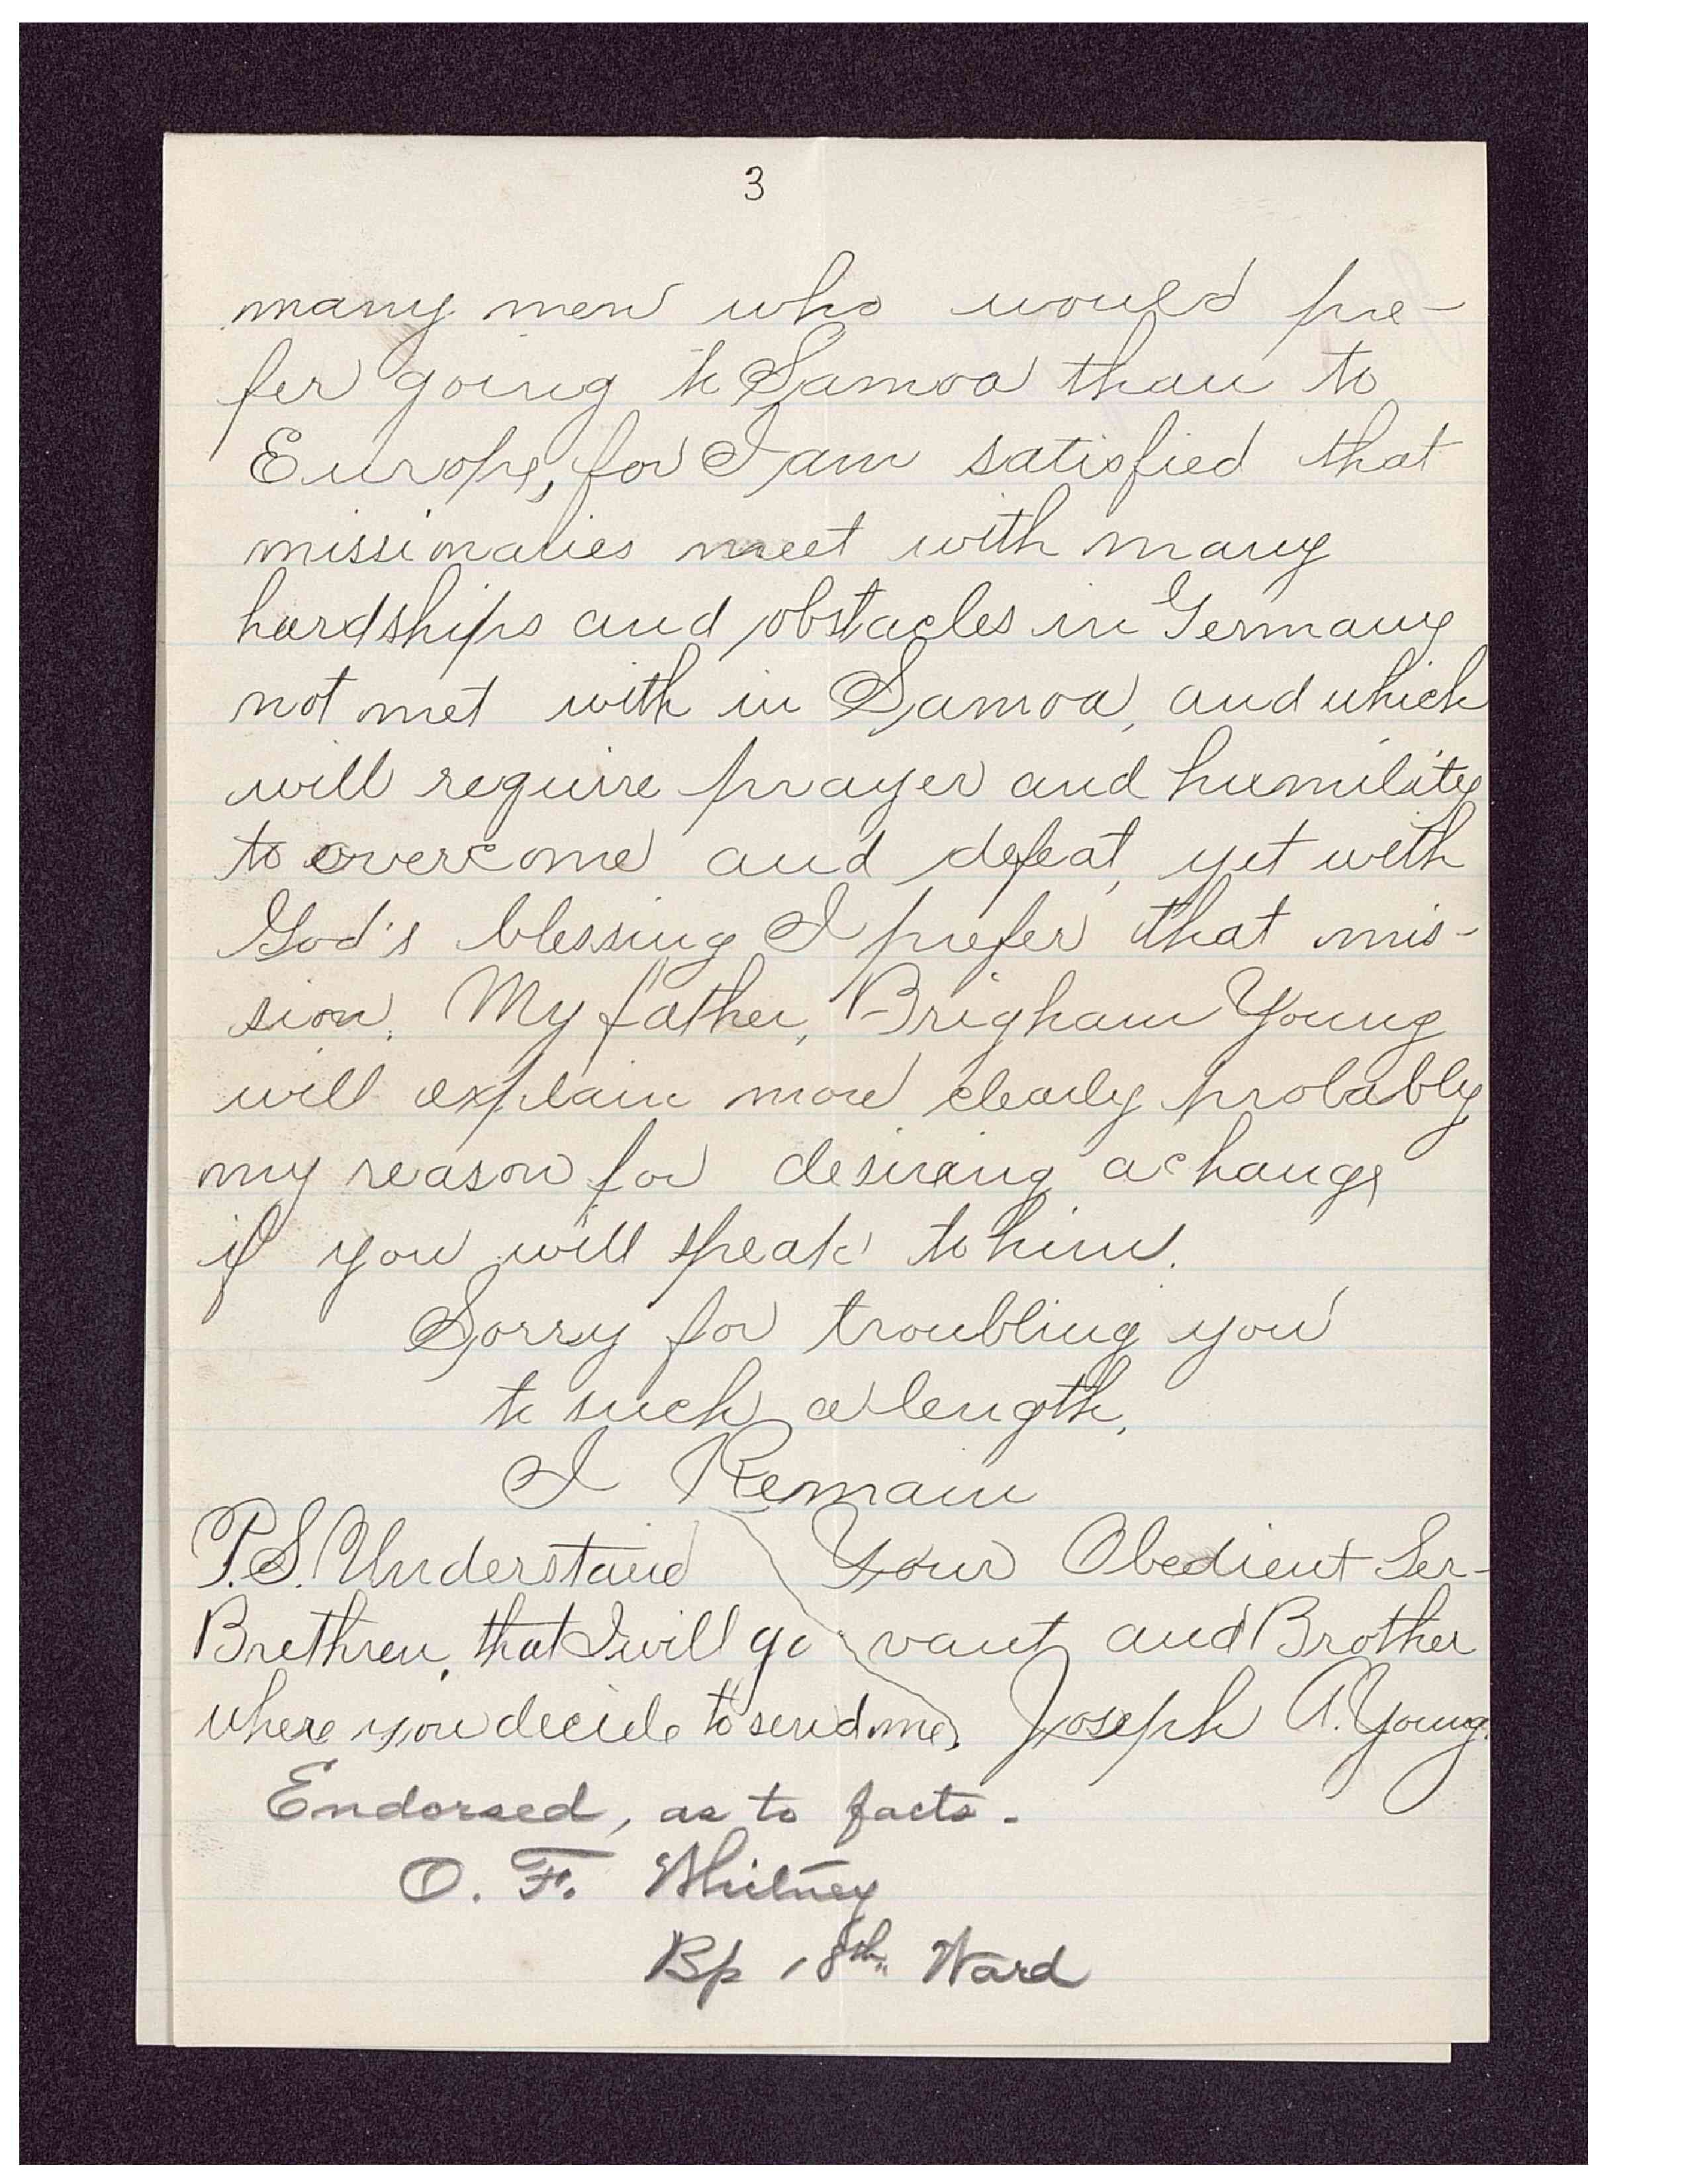 3
many men who would pre-
fer going to Samoa than to
Europe, for I am satisfied that
missionaries meet with many
hardships and obstacles in Germany
not met with in Samoa, and which
will require prayer and humility
to overcome and defeat, yet with
God's blessing I prefer that mis-
sion. My father, Brigham Young
will explain more clearly probably
my reason for desiring a change
if you will speak to him.
Sorry for troubling you
to such a length,
I Remain
Your Obedient Ser-
vant and Brother
Joseph A. Young.
P.S. Understand
Brethren, that I will go
where you decide to send me.
Endorsed, as to facts.
O. F. Whitney
Bp 18th Ward